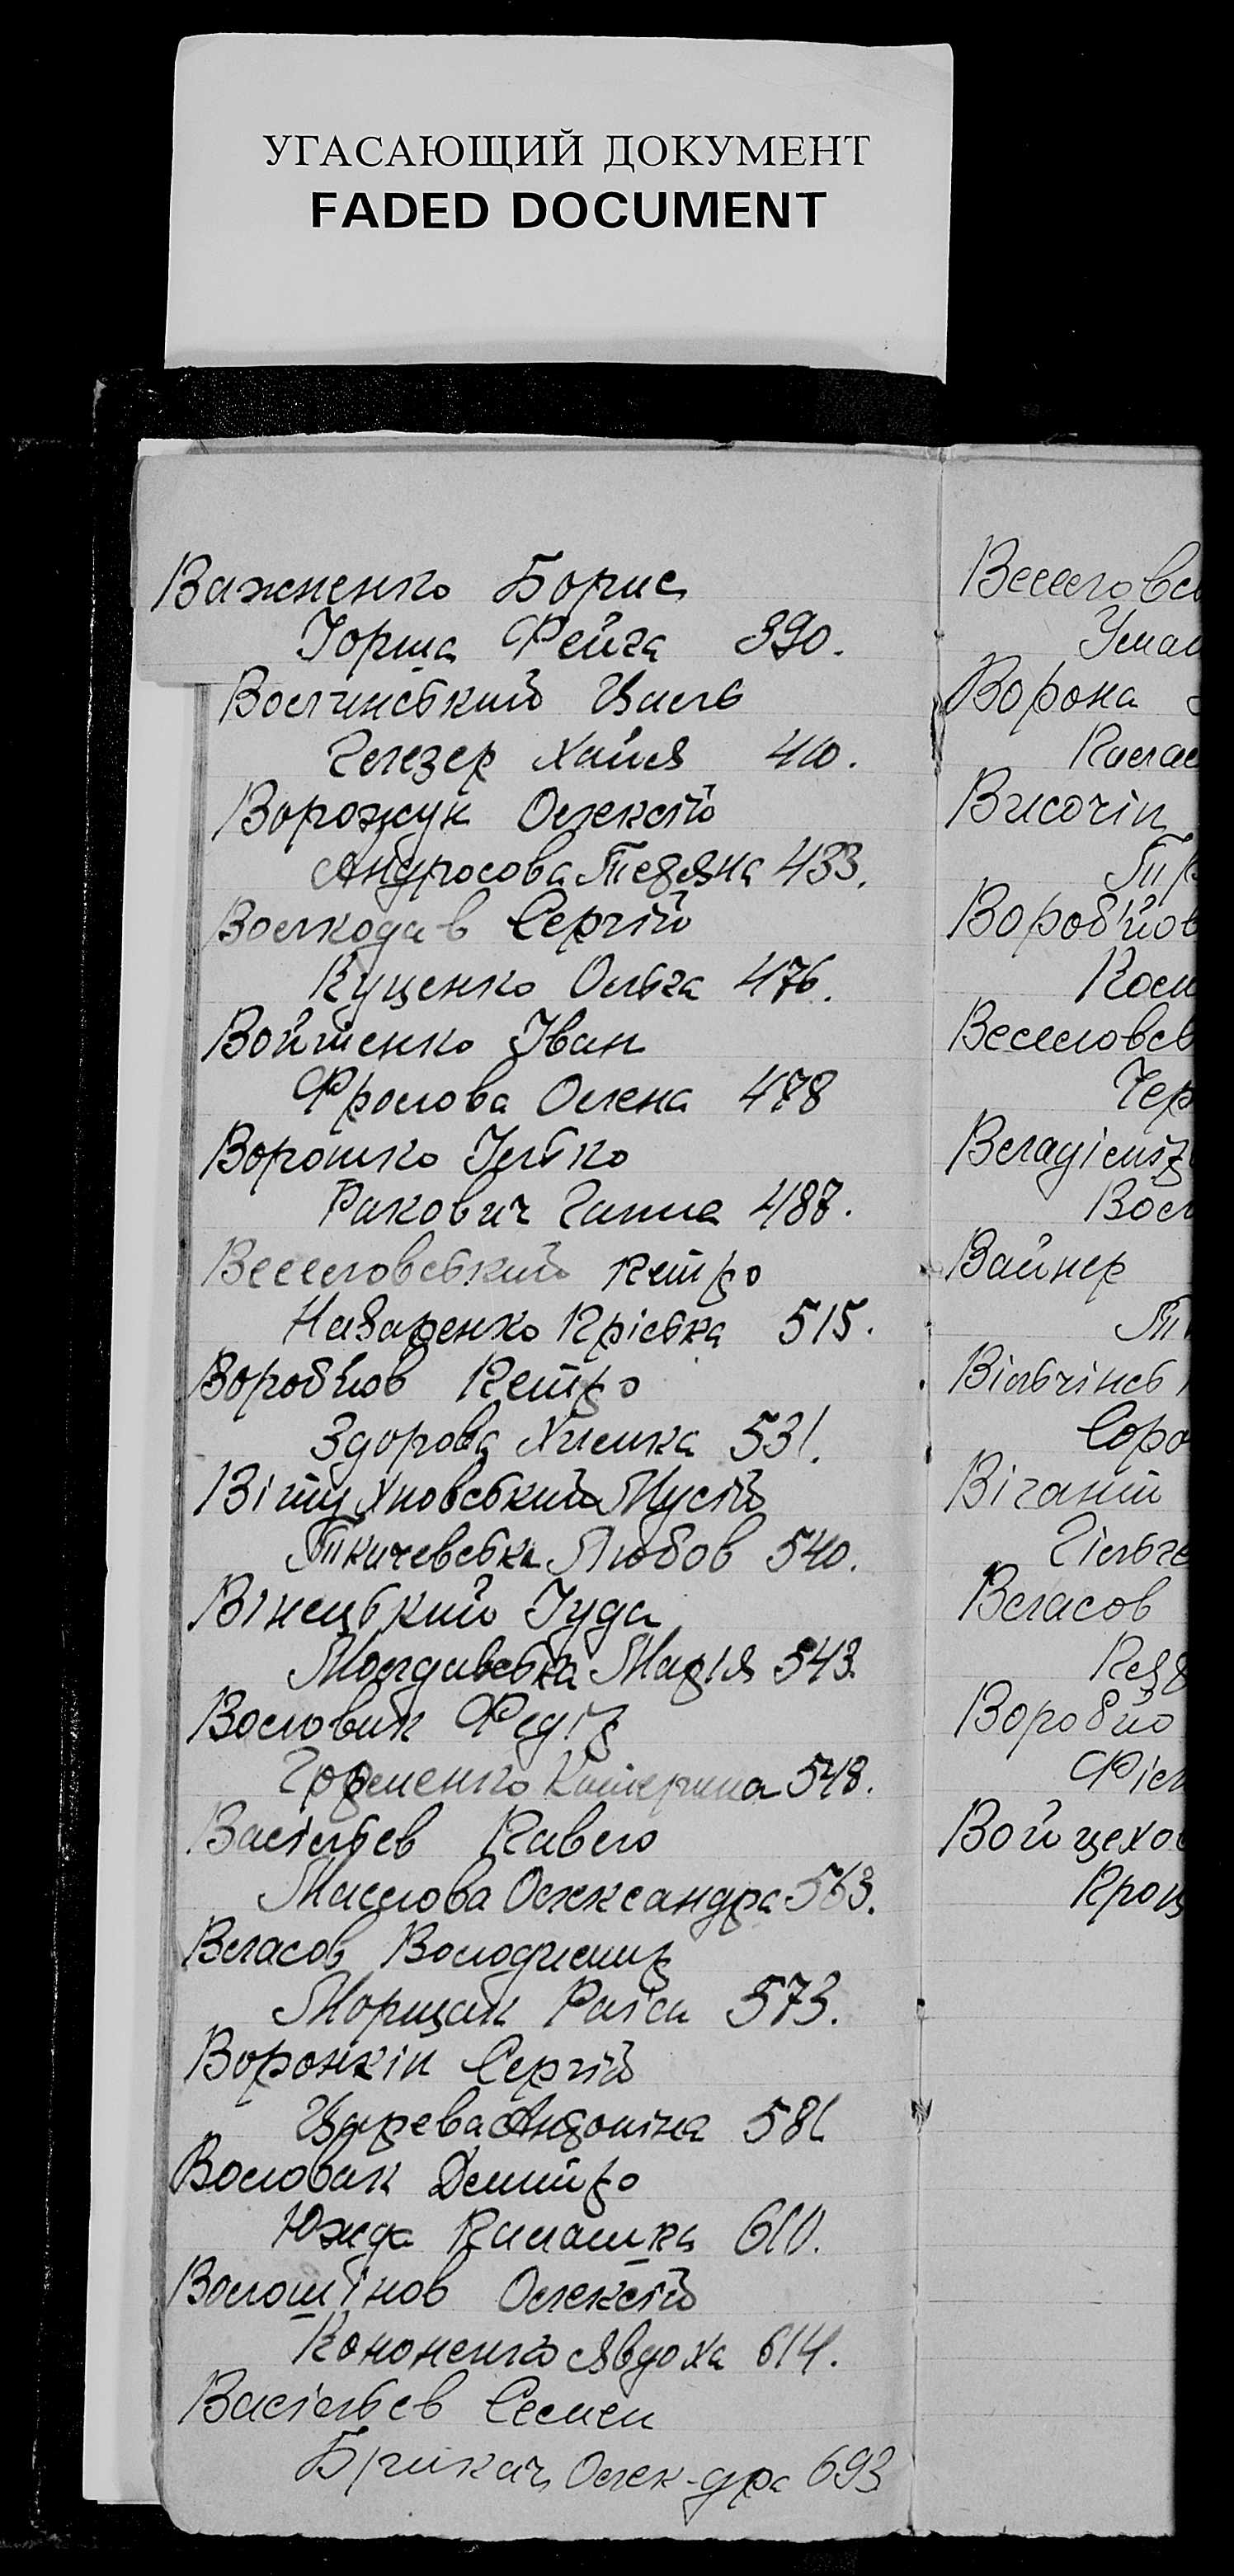 УГАСАЮЩИЙ ДОКУМЕНТ
FADED DOCUMENT
Важненко Борис
Горша Фейга 390.
Волчинський Циль
Гегезер Хайя 410.
Ворожук Олексій
Андросова Тетяна 433.
Волкодав Сергій
Куценко Ольга 476.
Войтенко Іван
Фролова Олена 478
Ворошко Ілько
Ракович Ганна 488.
Веселовський Петро
Назаренко Пріська 515.
Воробйов Петро
Здорова Химка 531.
Вітухновський Мусій
Ткичевська Любов 540.
Вінецький Іуда
Молдавська Марія 543.
Воловик Федір
Гордієнко Катерина 548.
Васільєв Павло
Маслова Олександра 563.
Власов Володимир
Морщак Раїса 573.
Воронкін Сергій
Царева Антоніна 581
Воловик Дмитро
Южда Палашка 610.
Волошінов Олексій
Кононенко Явдоха 614.
Васільєв Семен
Олек-дра 693
Веселовсь
Уман
Ворона
Височін
Воробйов
Веселовсь
Чер
Вол
Вайнер
Вільчінсь
Соро
Вігант
Гільге
Власов
Воробйо
Філ
Войцехов
Кроп